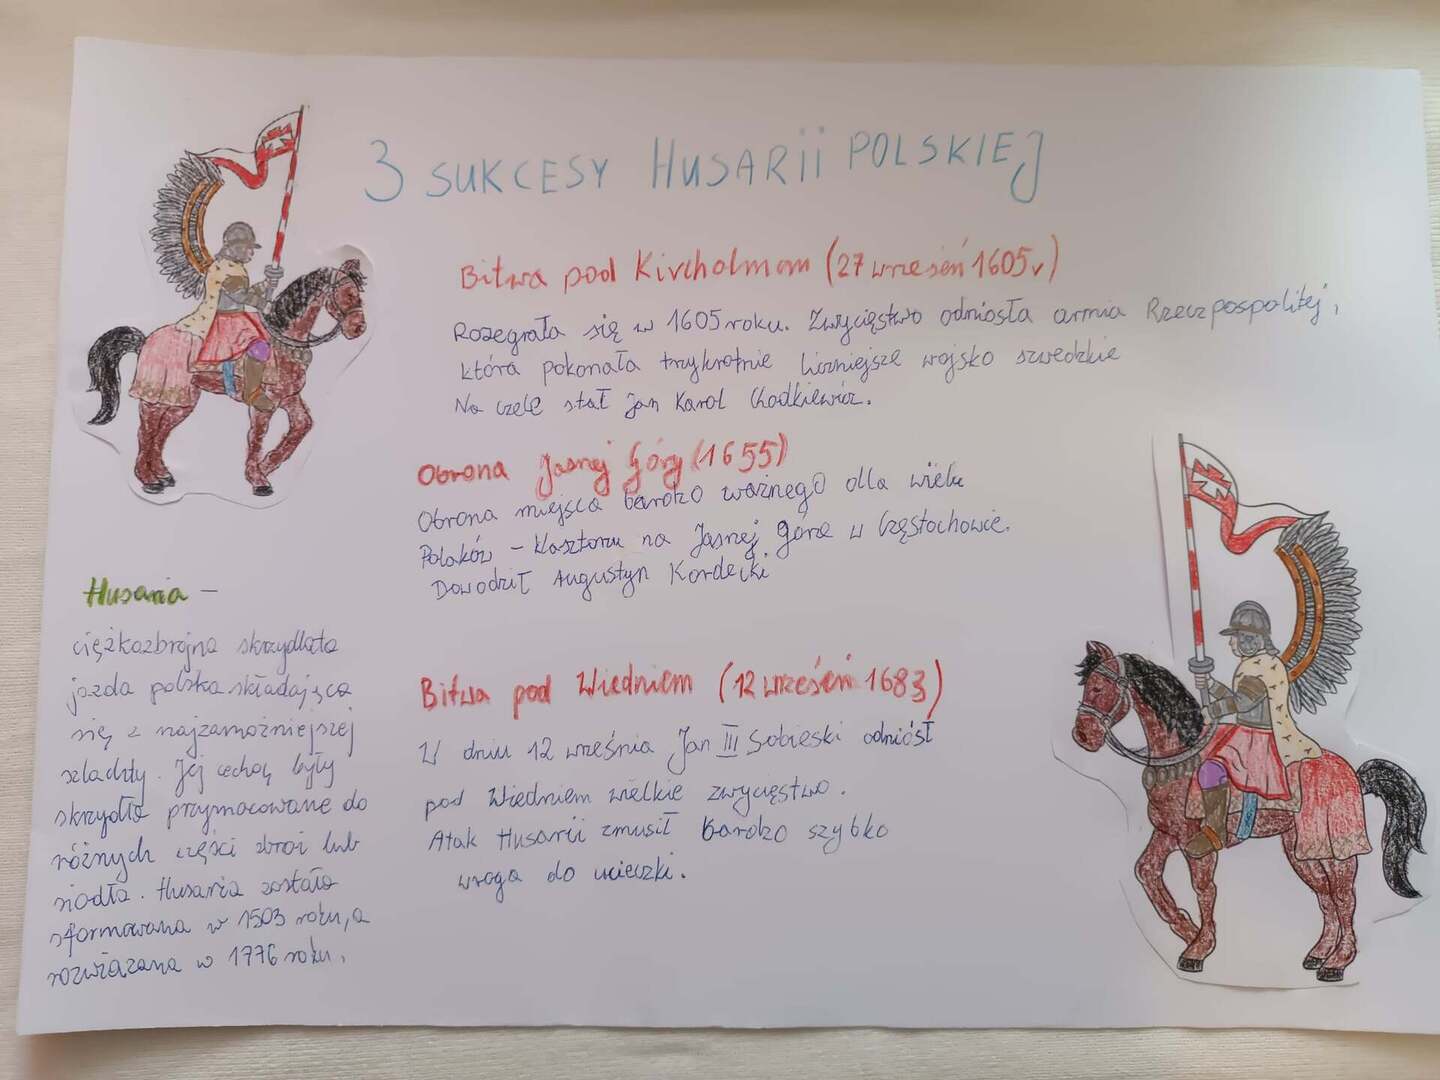 3 SUKCESY HUSARII POLSKIEJ
Bitwa pod Kircholmem (27 wrzesień 1605r)
Rozegrała się w 1605 roku. Zwycięstwo odniosła armia Rzeczpospolitej,
która pokonała trzykrotnie liczniejsze wojsko szwedzkie
Na czele stał Jan Karol Chodkiewicz.
Obrona Jasnej Góry (1655)
Obrona miejsca bardzo ważnego dla wielu
Polaków - klasztoru na Jasnej Górze w Częstochowie.
Dowodził Augustyn Kordecki
Bitwa pod Wiedniem (12 wrzesień 1683)
W dniu 12 września Jan III Sobieski odniósł
pod Wiedniem wielkie zwycięstwo.
Atak Husarii zmusił bardzo szybko
wroga do ucieczki.
Husaria -
ciężkozbrojna skrzydlata
jazda polska składająca
się z najzamożniejszej
szlachty. Jej cechą były
skrzydła przymocowane do
różnych części zbroi lub
siodła. Husaria została
sformowana w 1503 roku, a
rozwiązana w 1776 roku.